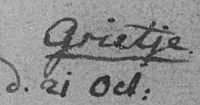 Grietje.
d. 21 Oct: